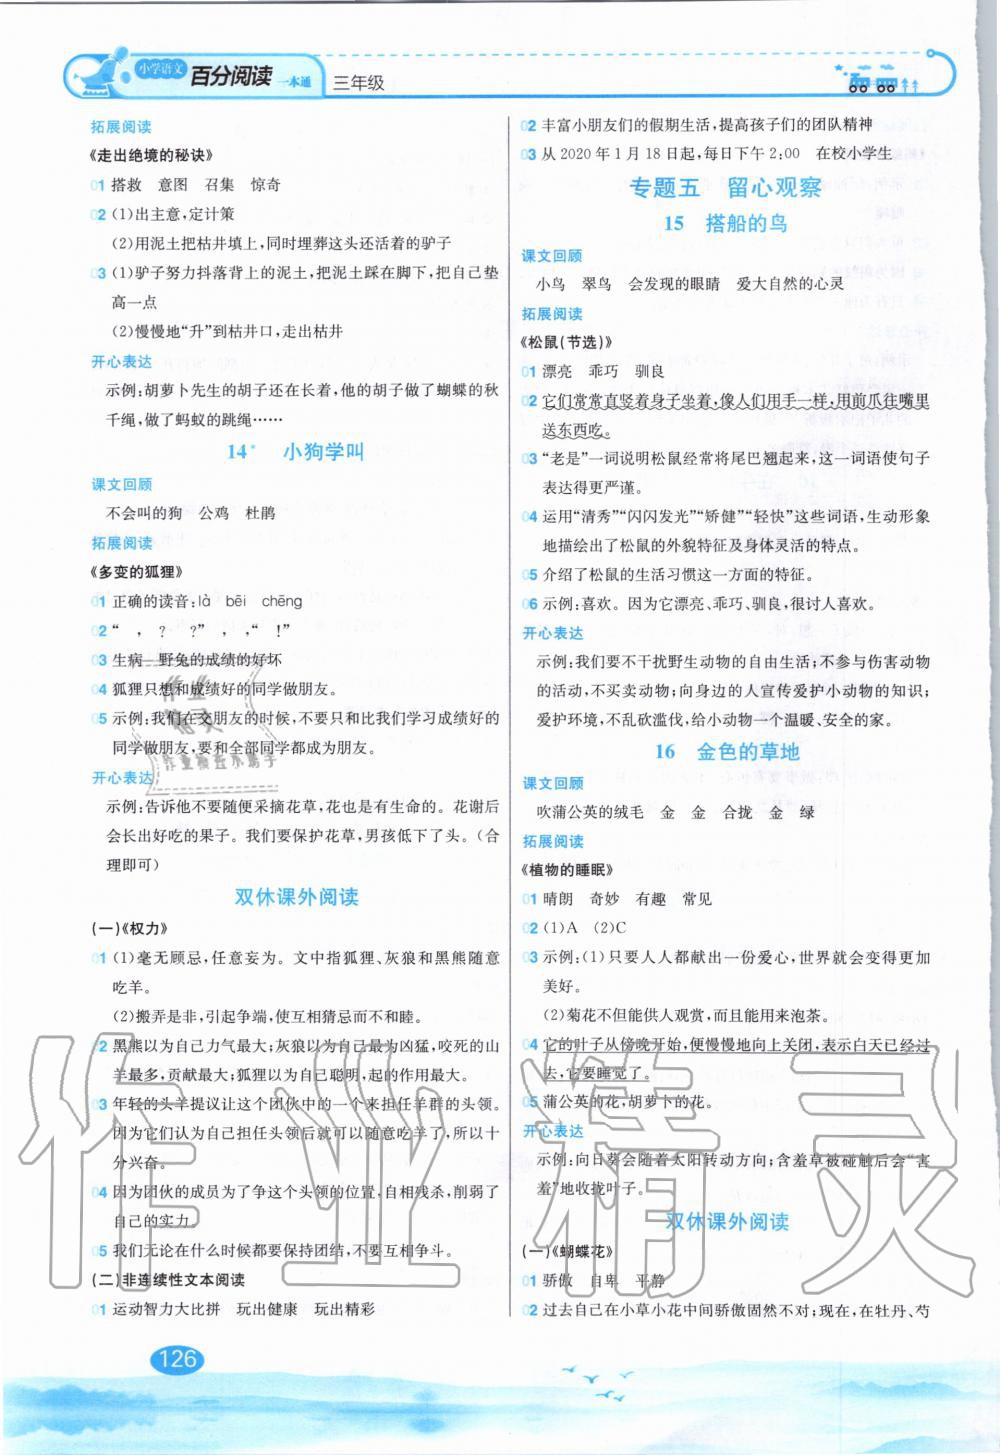 小学语文
百分阅读
一本通
三年级
拓展阅读
《走出绝境的秘诀》
01 搭救 意图 召集 惊奇
02 (1)出主意,定计策
(2)用泥土把枯井填上,同时埋葬这头还活着的驴子
03 (1)驴子努力抖落背上的泥土,把泥土踩在脚下,把自己垫
高一点
(2)慢慢地“升”到枯井口,走出枯井
开心表达
示例:胡萝卜先生的胡子还在长着,他的胡子做了蝴蝶的秋
千绳,做了蚂蚁的跳绳……
14* 小狗学叫
课文回顾
不会叫的狗 公鸡 杜鹃
拓展阅读
《多变的狐狸》
01 正确的读音:là bēi chēng
02 “ , ? ?” , ,“ !”
03 生病 野兔的成绩的好坏
04 狐狸只想和成绩好的同学做朋友。
05 示例:我们在交朋友的时候,不要只和比我们学习成绩好的
同学做朋友,要和全部同学都成为朋友。
开心表达
示例:告诉他不要随便采摘花草,花草也是有生命的。花谢后
会长出好吃的果子。我们要保护花草,男孩低下了头。(合
理即可)
双休课外阅读
(一)《权力》
01 (1)毫无顾忌,任意妄为。文中指狐狸、灰狼和黑熊随意
吃羊。
(2)搬弄是非,引起争端,使互相猜忌而不和睦。
02 黑熊以为自己力气最大;灰狼以为自己最为凶猛,咬死的山
羊最多,贡献最大;狐狸以为自己聪明,起的作用最大。
03 年轻的头羊提议让这个团伙中的一个来担任羊群的头领。
因为它们认为自己担任头领后就可以随意吃羊了,所以十
分兴奋。
04 因为团伙的成员为了争这个头领的位置,自相残杀,削弱了
自己的实力。
05 我们无论在什么时候都要保持团结,不要互相争斗。
(二)非连续性文本阅读
01 运动智力大比拼 玩出健康 玩出精彩
02 丰富小朋友们的假期生活,提高孩子们的团队精神
03 从 2020 年 1 月 18 日起,每日下午 2:00 在校小学生
专题五 留心观察
15 搭船的鸟
课文回顾
小鸟 翠鸟 会发现的眼睛 爱大自然的心灵
拓展阅读
《松鼠(节选)》
01 漂亮 乖巧 驯良
02 它们常常直竖着身子坐着,像人们用手一样,用前爪往嘴里
送东西吃。
03 “老是”一词说明松鼠经常将尾巴翘起来,这一词语使句子
表达得更严谨。
04 运用“清秀”“闪闪发光”“矫健”“轻快”这些词语,生动形象
地描绘出了松鼠的外貌特征及身体灵活的特点。
05 介绍了松鼠的生活习惯这一方面的特征。
06 示例:喜欢。因为它漂亮、乖巧、驯良,很讨人喜欢。
开心表达
示例:我们要不干扰野生动物的自由生活;不参与伤害动物
活动,不买卖动物;向身边的人宣传爱护小动物的知识;
爱护环境,不乱砍滥伐,给小动物一个温暖、安全的家。
16 金色的草地
课文回顾
吹蒲公英的绒毛 金 金 合拢 金 绿
拓展阅读
《植物的睡眠》
01 晴朗 奇妙 有趣 常见
02 (1)A (2)C
03 示例:(1)只要人人都献出一份爱心,世界就会变得更加
美好。
(2)菊花不但能供人观赏,而且能用来泡茶。
04 它的叶子从傍晚开始,便慢慢地向上关闭,表示白天已经过
去,它要睡觉了。
05 蒲公英的花,胡萝卜的花。
开心表达
示例:向日葵会随着太阳转动方向;含羞草被碰触后会“害
羞”地收拢叶子。
双休课外阅读
(一)《蝴蝶花》
01 骄傲 自卑 平静
02 过去自己在小草小花中间骄傲固然不对;现在,在牡丹、芍
126
作业精灵
作业
精灵